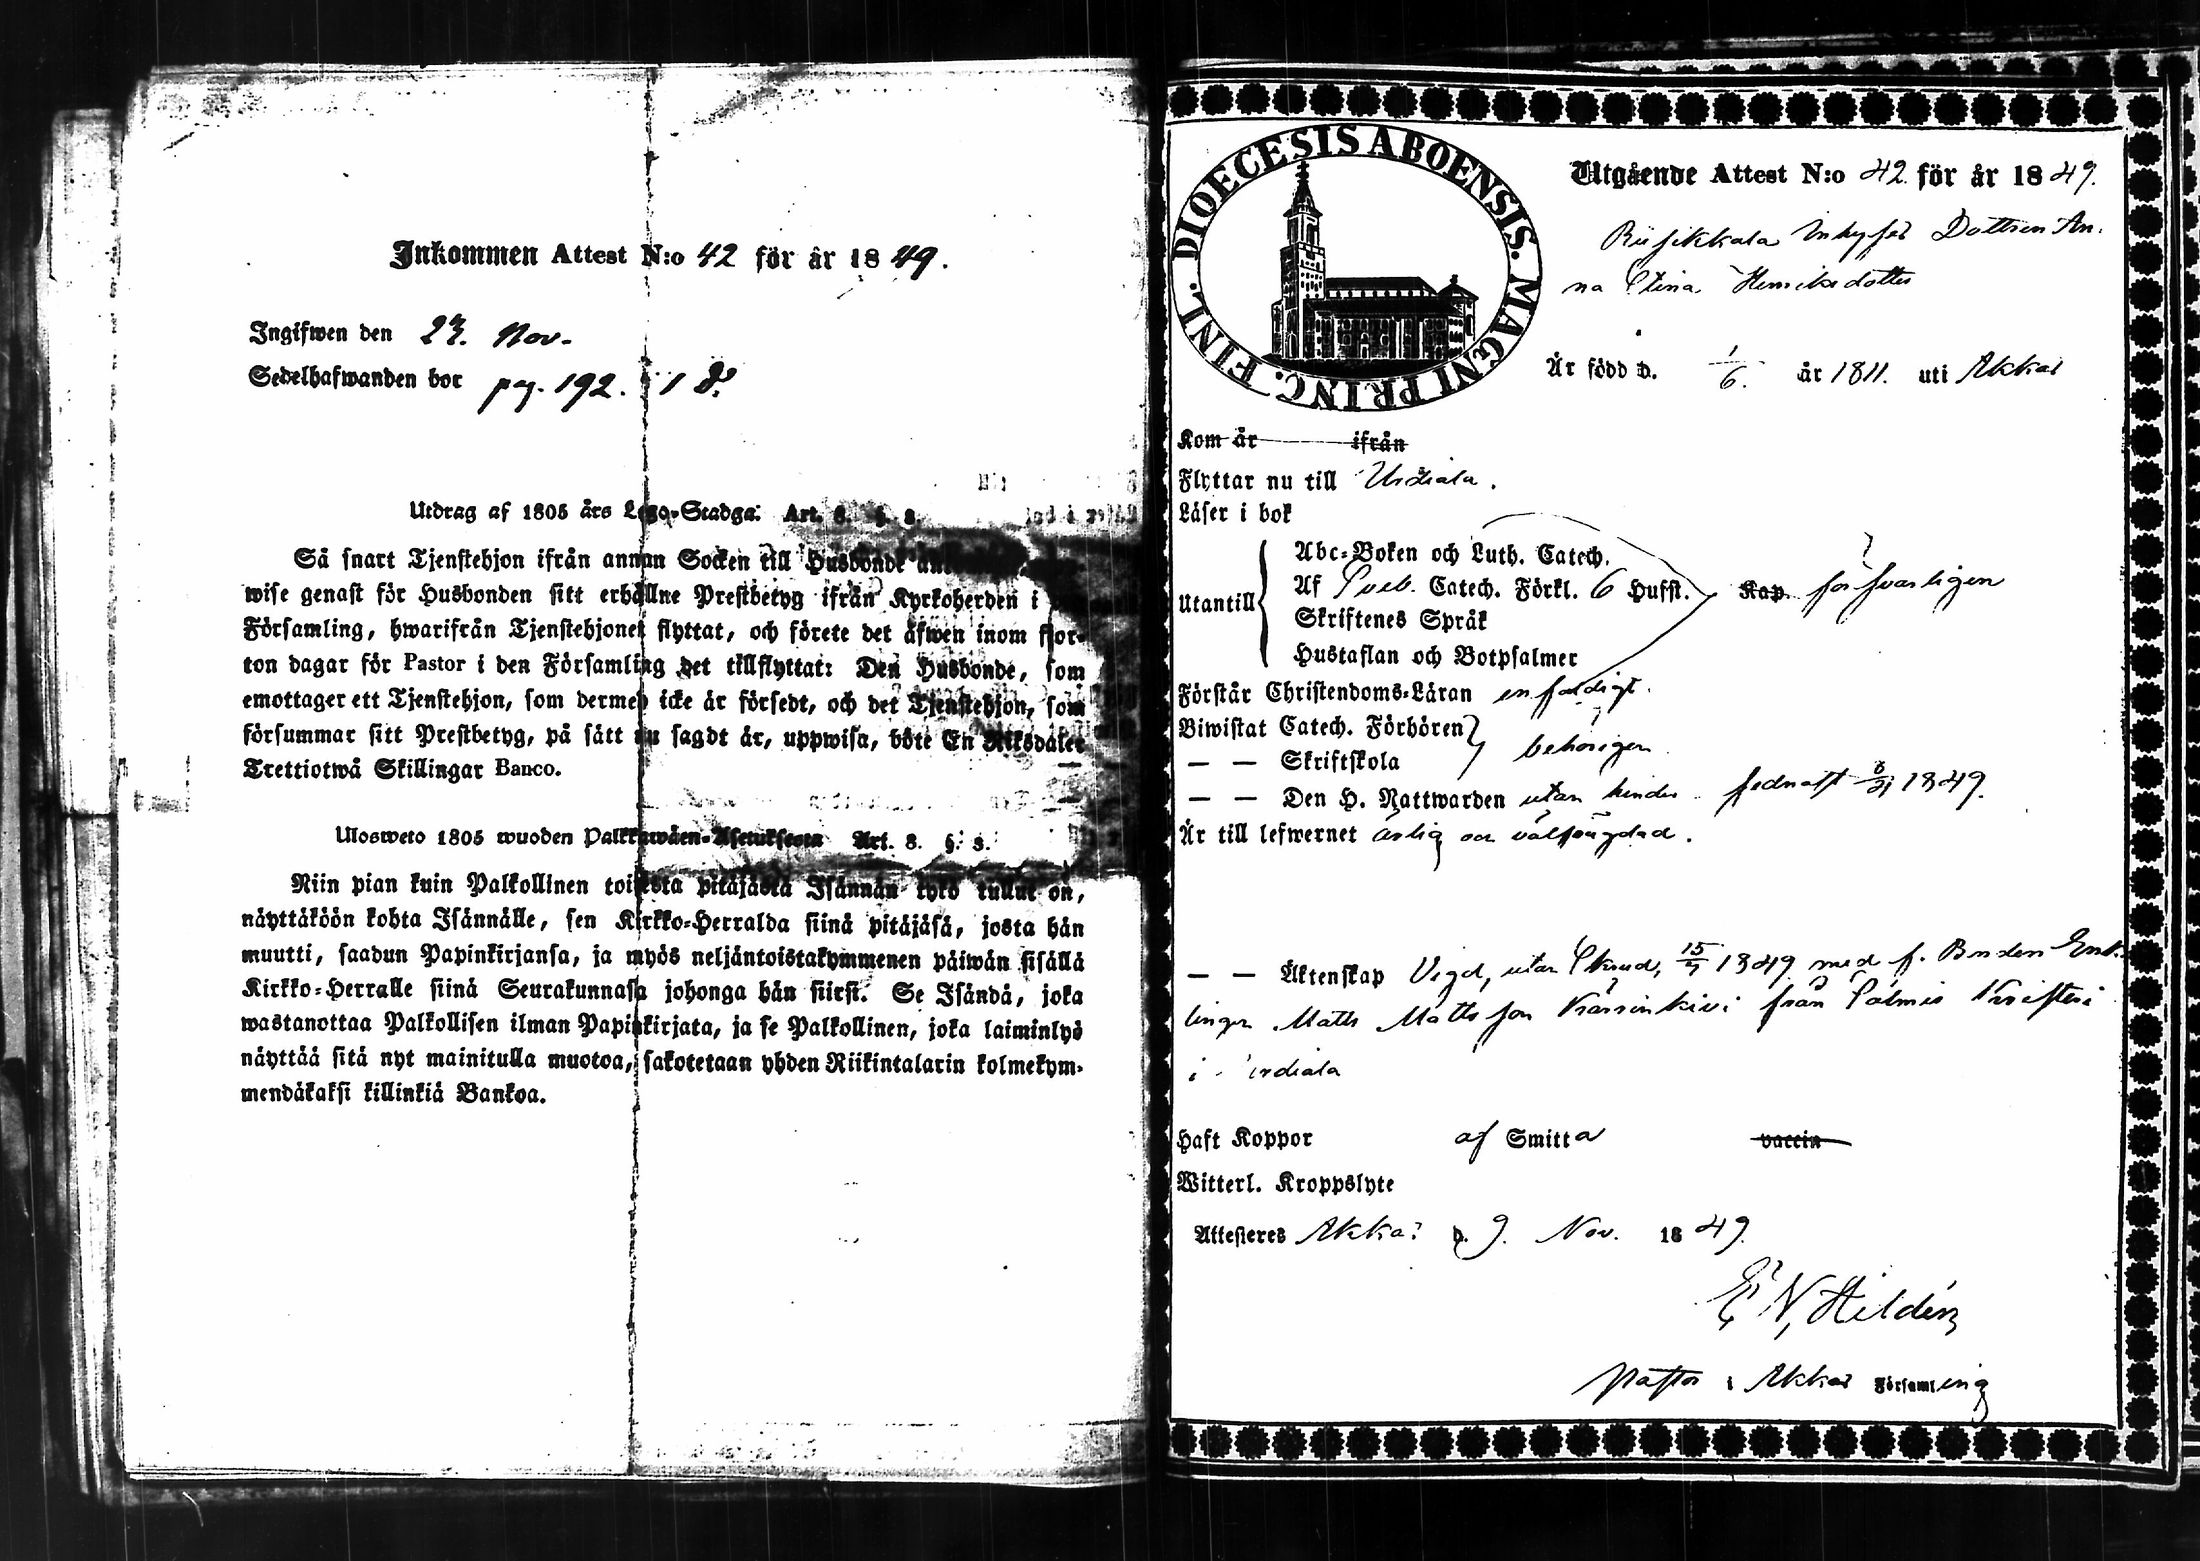 Inkommen Attest N:o 42 för år 1849.
Ingifwen den 23. Nov.
Sedelhafwanden bor pag. 192.
Utdrag af 1805 års Lego-Stadga: Art. 8. §. 8.
Så snart Tjenstehjon ifrån annan Socken till Husbonde
wise genast för Husbonden sitt erhållne Prestbetyg ifrån Kyrkoherden i
Församling, hwarifrån Tjenstehjonet flyttat, och förete det äfwen inom fjor-
ton dagar för Pastor i den Församling det tillflyttat: Den Husbonde, som
emottager ett Tjenstehjon, som dermed icke är försedt, och det Tjenstehjon, som
försummar sitt Prestbetyg, på sätt nu sagdt är, uppwisa, böte En Riksdaler
Trettiotwå Skillingar Banco.
Ulosweto 1805 wuoden Palkkawäen-Asetuksesta Art. 8. §. 8.
Niin pian kuin Palkollinen toisesta pitäjästä Isännän tykö tullut on,
näyttäköön kohta Isännälle, sen Kirkko-Herralda siinä pitäjäsä, josta hän
muutti, saadun Papinkirjansa, ja myös neljäntoistakymmenen päiwän sisällä
Kirkko-Herralle siinä Seurakunnasa johonga hän siirsi. Se Isändä, joka
wastanottaa Palkollisen ilman Papinkirjata, ja se Palkollinen, joka laiminlyö
näyttää sitä nyt mainitulla muotoa, sakotetaan yhden Riikintalarin kolmekym-
mendäkaksi killinkiä Bankoa.
DIOECESIS ABOENSIS. MAGNI PRINC. FINL.
Utgående Attest N:o 42. för år 1849.
Riisikkala Inhyses Dottren An-
na Stina Henriksdotter
Är född d. 1/6. år 1811. uti Akkas
Kom år ifrån
Flyttar nu till Urdiala.
Läser i bok
Utantill
Abc-Boken och Luth. Catech.
Af Sveb. Catech. Förkl. 6 Hufst. Kap. försvarligen
Skriftenes Språk
Hustaflan och Botpsalmer
Förstår Christendoms-Läran enfaldigt.
Biwistat Catech. Förhören
— — Skriftskola behörigen
— — Den H. Nattwarden utan hinder sednast 1849.
Är till lefwernet ärlig och välfrägdad.
— — Äktenskap Vigd, utan Skrud, 15/7 1849 med f. Bonden Enk-
lingen Matts Mattsson från Salmis
i Urdiala
Haft Koppor af Smitta vaccin
Witterl. Kroppslyte
Attesteres Akkas d. 9. Nov. 1849.
E N Hildén
Pastor i Akkas Församling